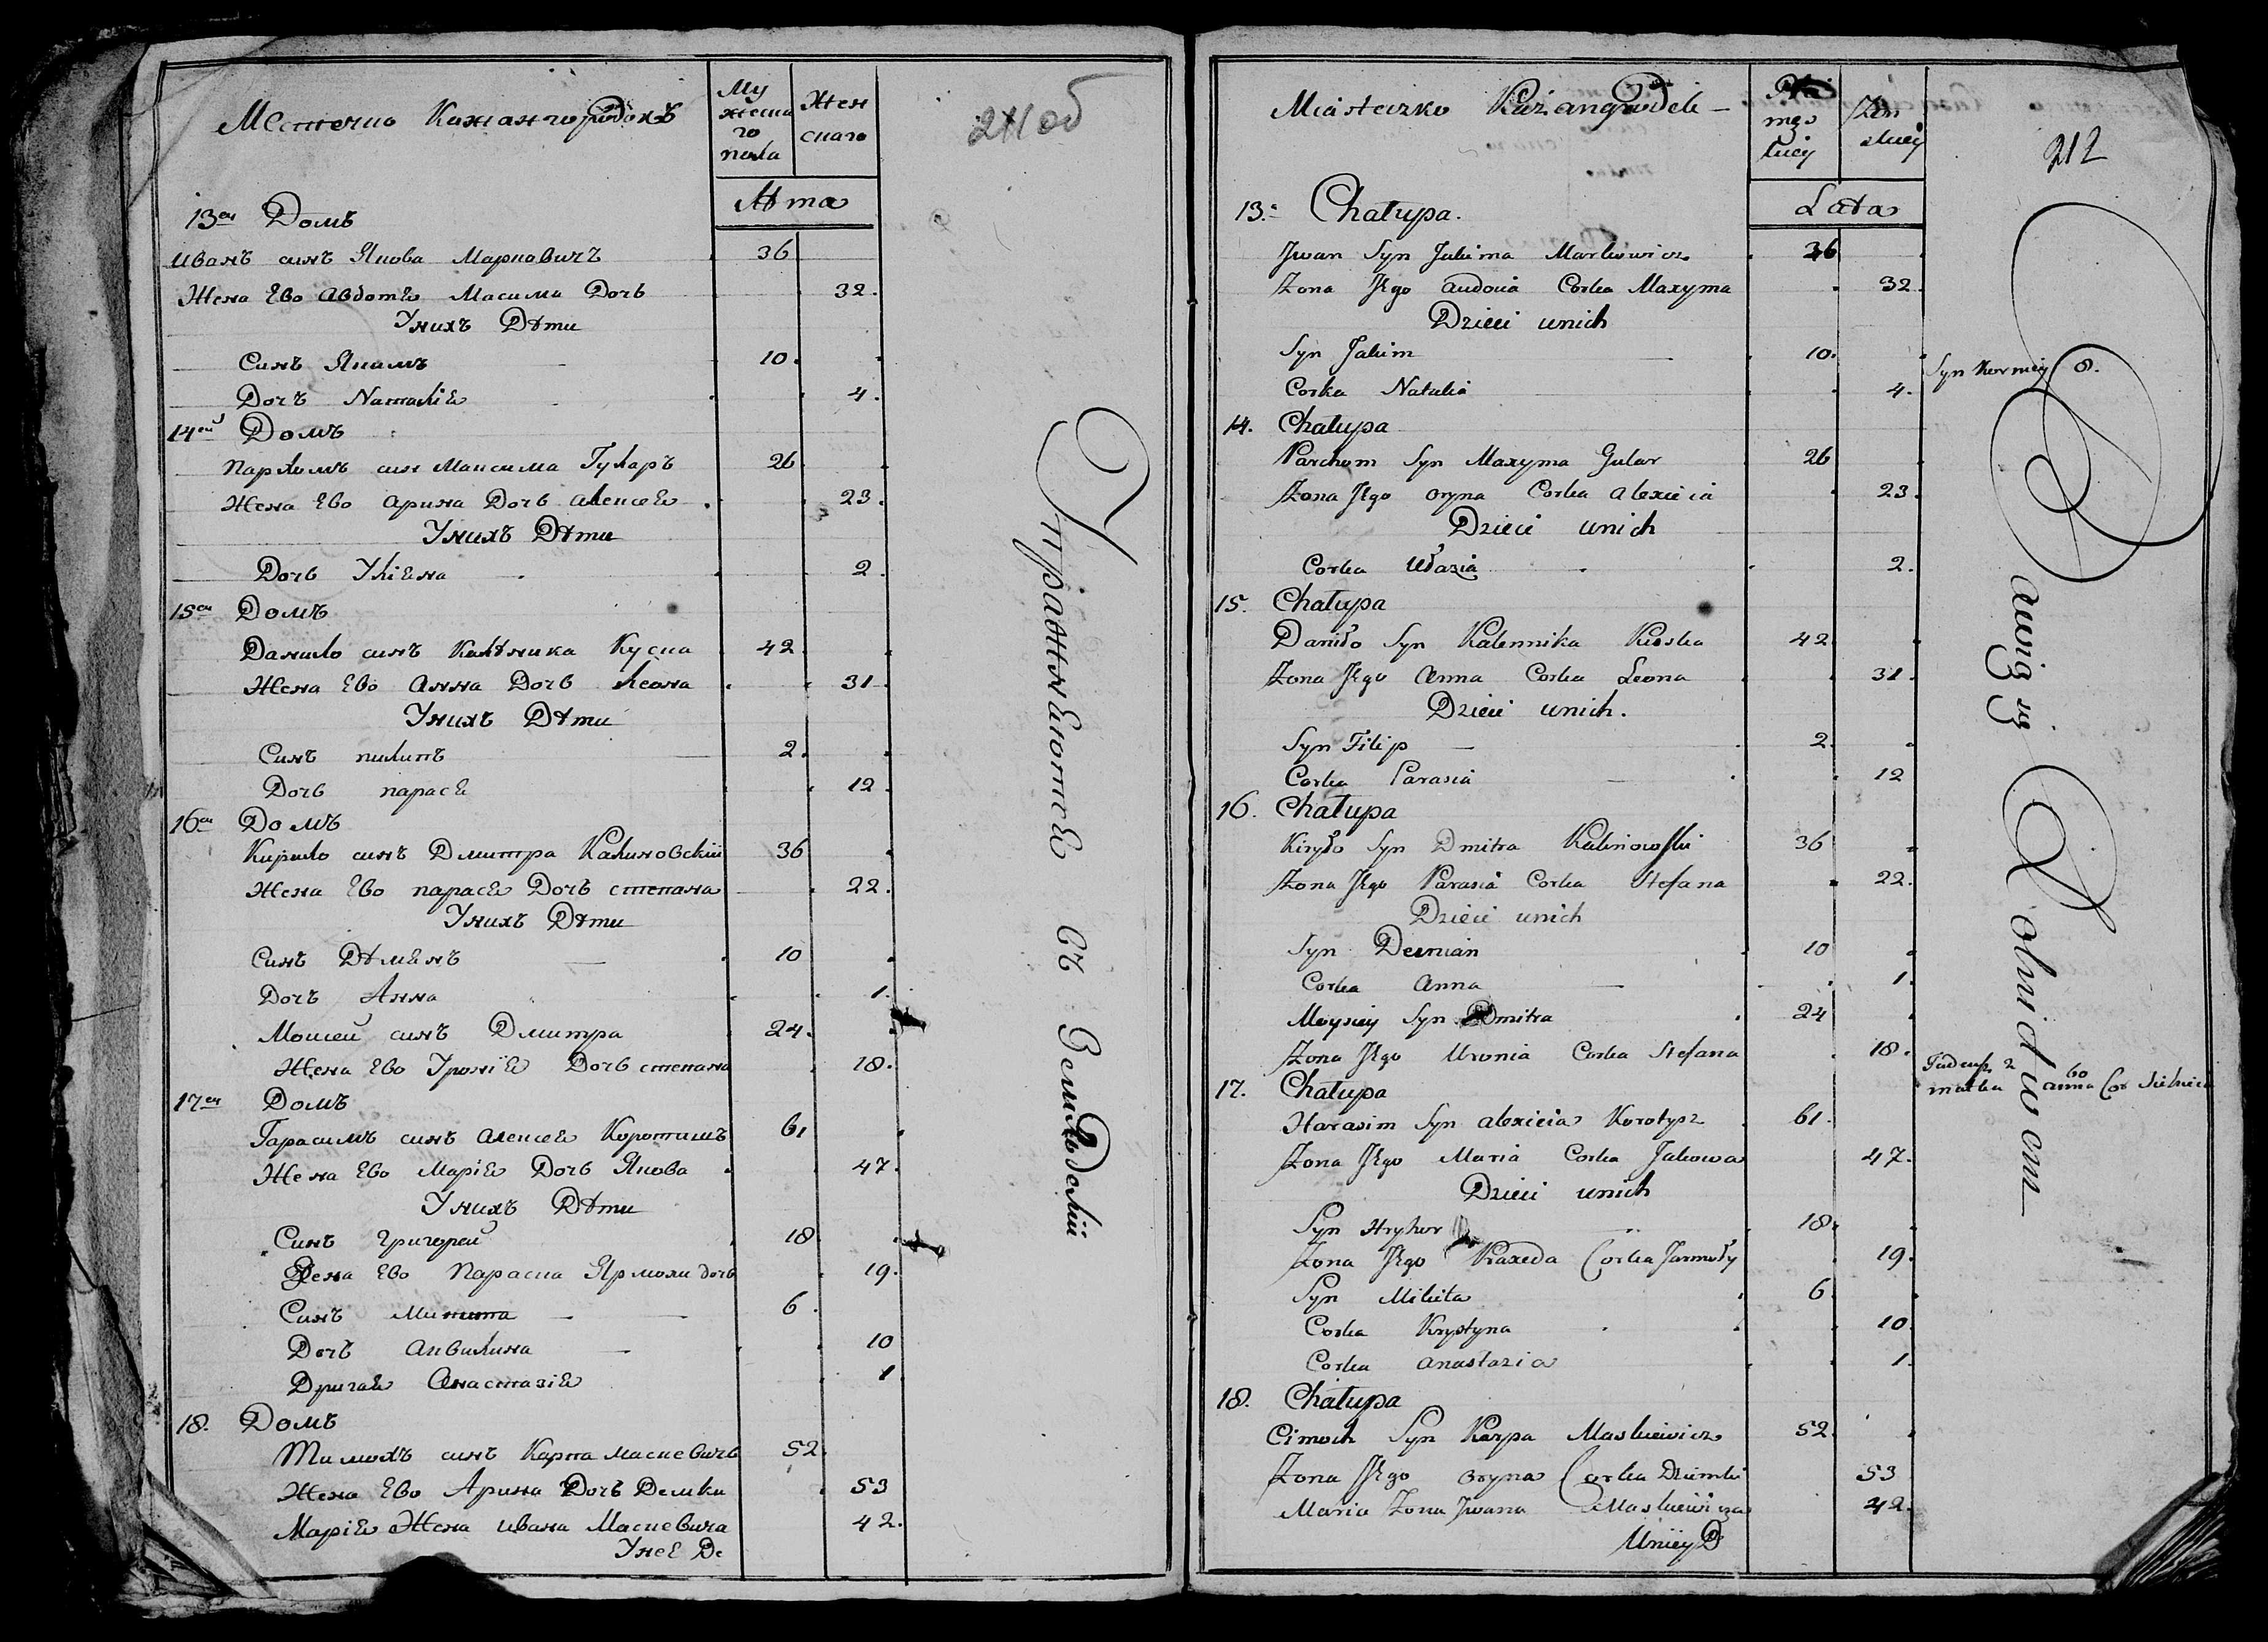 Местечко Кожангородокъ
Мужескаго пола
Женскаго
Лѣта
211 об
13ей Домъ
Иванъ синъ Якова Марковичъ 36
Жена Ево Авдотъѣ Масима Дочь 32.
Унихъ Дѣти
Синъ Якимъ 10.
Дочъ Наталiѣ 4.
14ей Домъ
Пархомъ син Максима Гуларъ 26
Жена Ево Арина Дочь Алексѣѣ 23.
Унихъ Дѣти
Дочь Улiѣна 2.
15ей Домъ
Данило синъ Калѣника Куска 42
Жена Ево Анна Дочь Леона 31.
Унихъ Дѣти
Синъ пилипъ 2.
Дочь парасѣ 12.
16ей Домъ
Кирило синъ Дмитра Калиновскiй 36
Жена Ево парасѣ Дочь степана 22.
Унихъ Дѣти
Синъ Дѣмѣнъ 10
Дочъ Анна 1.
Мойсей синъ Дмитра 24.
Жена Ево Уронiѣ Дочь степана 18.
17ей Домъ
Гарасимъ синъ Алексѣѣ Коротишъ 61
Жена Ево Марiѣ Дочь Якова 47.
Унихъ Дѣти
Синъ григорей 18
Жена Ево Параска Ярмоли дочь 19.
Синъ Микита 6.
Дочъ Аквилина 10
Другаѣ Анастазiѣ 1
18. Домъ
Тимохъ синъ Карпа Маскевичъ 52.
Жена Ево Арина Дочь Демка 53
Марiѣ Жена Ивана Маскевича 42.
Унеѣ Де
Упражнѣютсѣ въ Земледелiи
Miasteczko Każangrodek
męs kiey
Żen skiey
Lata
212
13. Chałupa.
Jwan Syn Jakima Markiewicz 36
Żona Jego Audocia Corka Maxyma 32.
Dzieci unich
Syn Jakim 10.
Syn Korniey 8.
Corka Natalia 4.
14. Chałupa
Parchom Syn Maxyma Gular 26
Żona Jego Oryna Corka Alexieia 23.
Dzieci unich
Corka 2.
15. Chałupa
Daniło Syn Kalennika Kuska 42
Żona Jego Anna Corka Leona 31.
Dzieci unich.
Syn Filip 2.
Corka Parasia 12
16. Chałupa
Kiryło Syn Dmitra Kalinowski 36
Żona Jego Parasia Corka Stefana 22.
Dzieci unich
Syn Demian 10
Corka Anna 1.
Moysiey Syn Dmitra 24
Żona Jego Uronia Corka Stefana 18.
Tadeusz 2
matka Anna 60 Cor
17. Chałupa
Harasim Syn Alexieia Korotysz 61.
Żona Jego Maria Corka Jakowa 47.
Dzieci unich
Syn Hryhor 18.
Żona Jego Praxeda Corka Jarmoły 19.
Syn Mikita 6
Corka Krystyna 10.
Corka Anastazia 1.
18. Chałupa
Cimoch Syn Karpa Maskiewicz 52.
Żona Jego Oryna Corka Dziemki 53
Maria Żona Jwana Maskiewicza 42.
Uniey D
Bawią się Rolnictwem